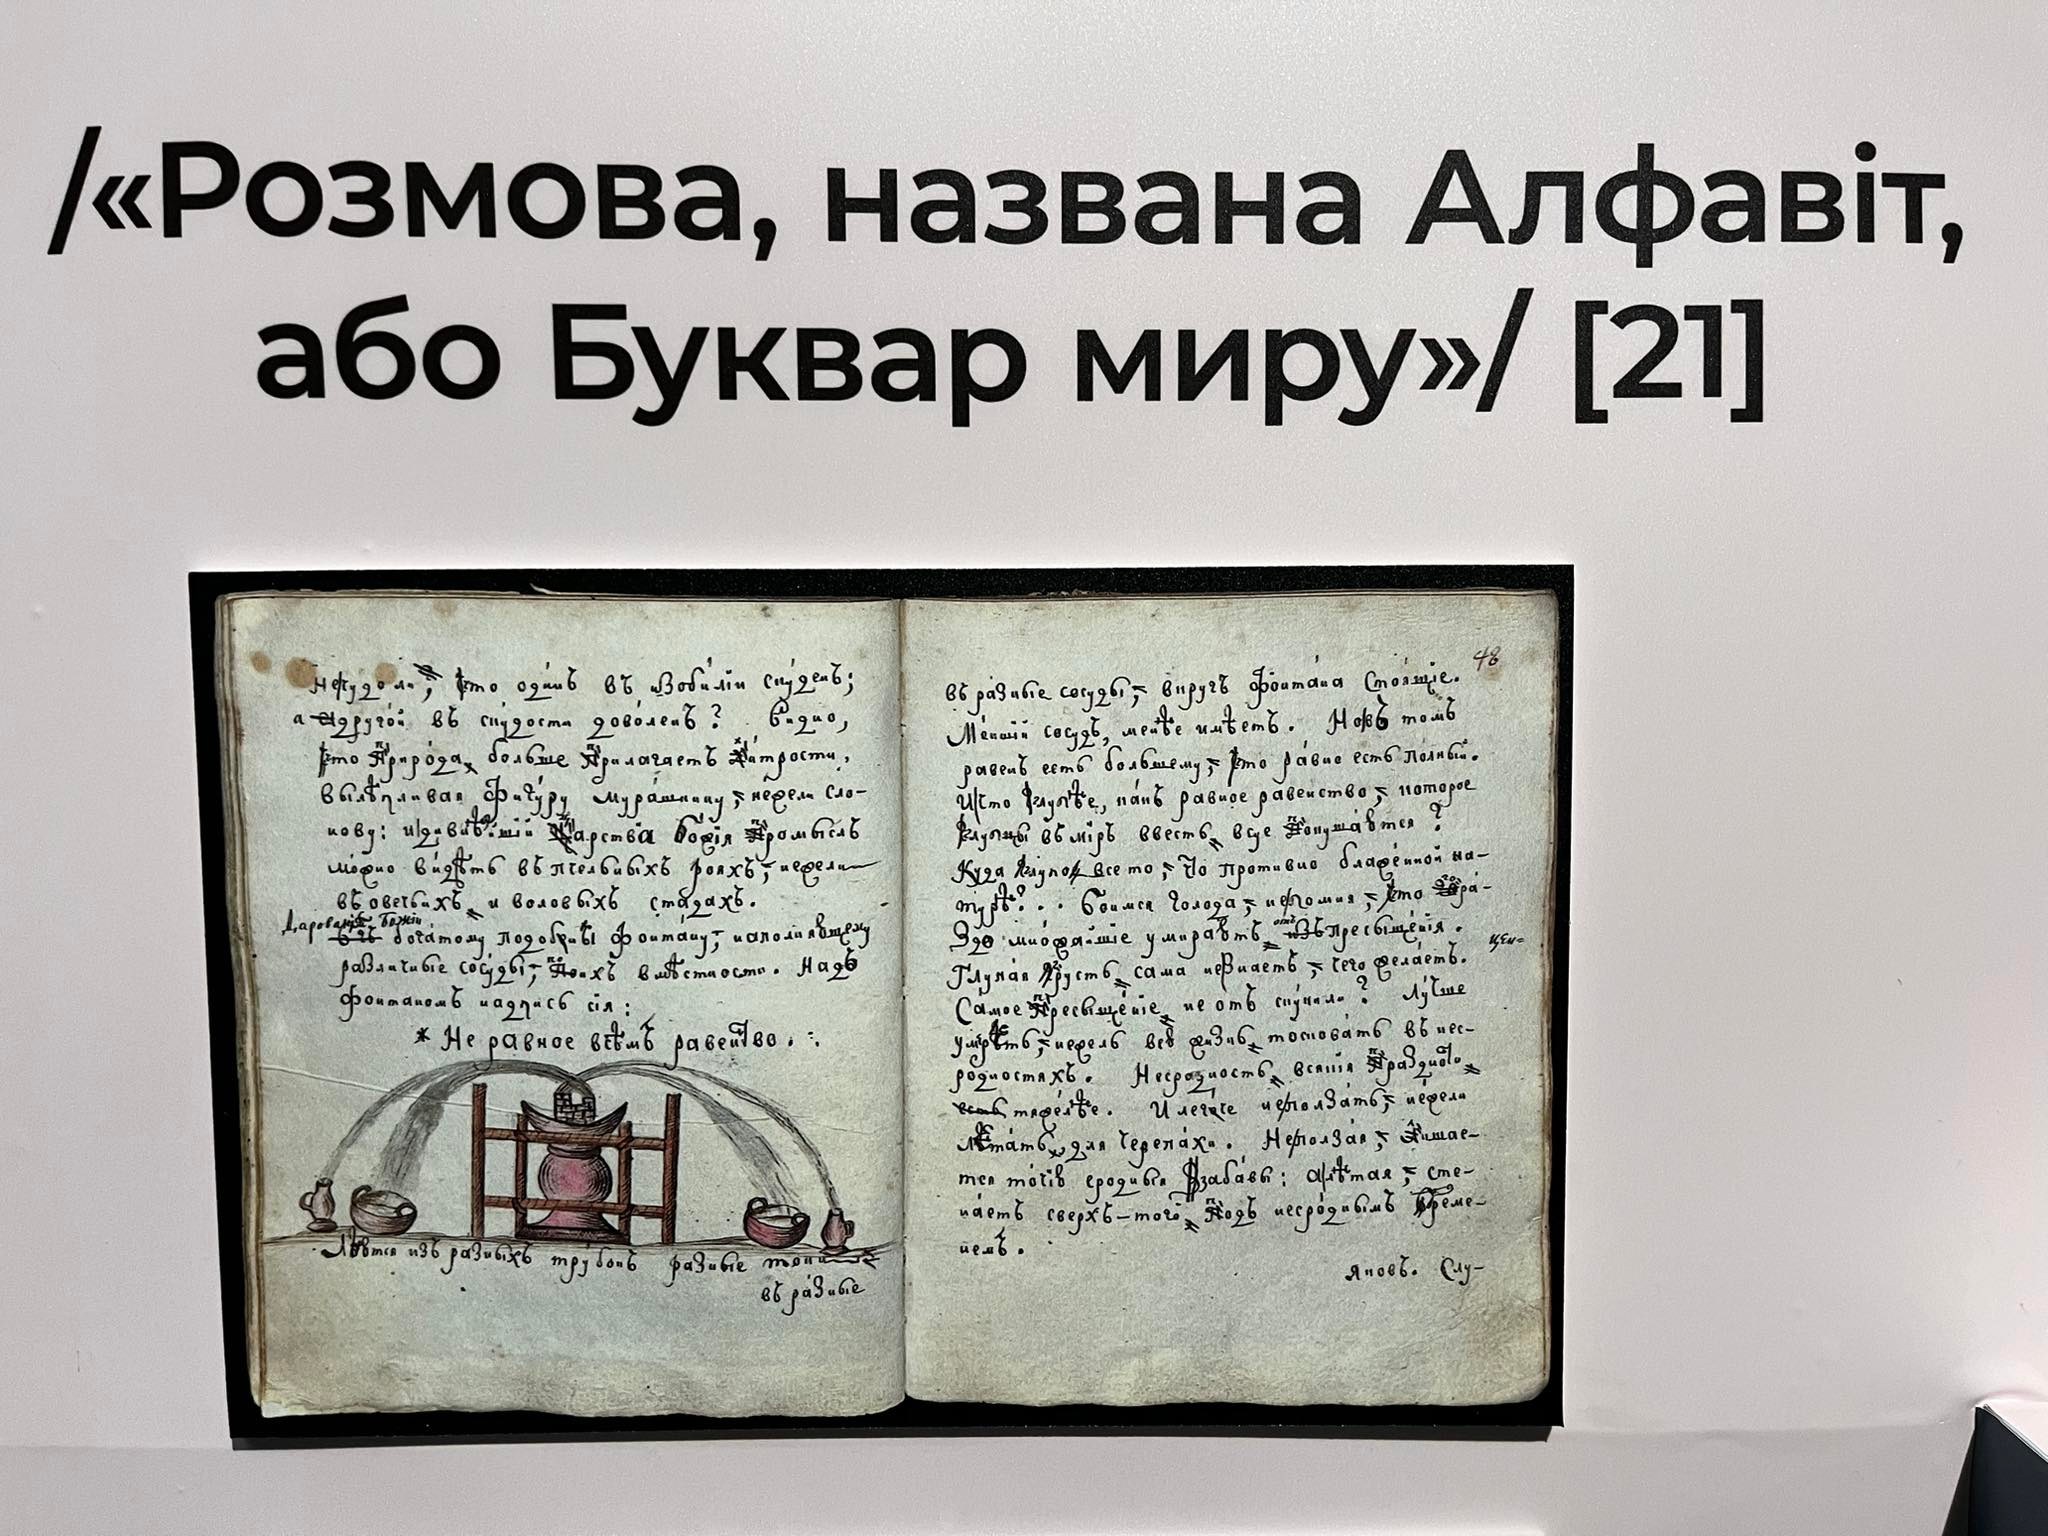 /«Розмова, названа Алфавіт,
або Буквар миру»/ [21]
48
что одинъ въ изобиліи скуденъ;
а другой въ скудости доволенъ? Видно,
что Природа, больше Прилагаетъ Хитрости,
вылѣпливая фигуру Мурашкину, нежели сло-
нову: и Царствіа Божія Промыслъ
можно видѣть въ пчельныхъ рояхъ, нежели
въ овечьихъ и воловыхъ стадахъ.
богатому подобенъ фонтану, наполняющему
различные сосуды, по ихъ вмѣстности. Надъ
фонтаномъ надпись сія:
* Не равное всѣмъ равенство.
Лѣются изъ разныхъ трубокъ разные токи
въ разные
въ разные сосуды, вкругъ фонтана Стоящіе.
Меншій сосудъ, менѣе имѣетъ. Но въ томъ
равенъ есть большему, что равно есть полный.
И что глупѣе, какъ равное равенство, которое
глупцы въ міръ ввесть всуе Покушаются?
Куда глупое все то, что противно блаженной на-
турѣ? . . Боимся голода, не помня, что гора-
здо множайшіе умираютъ отъ пресыщенія.
Глупая грусть сама не знаетъ, чего желаетъ.
Самое Пресыщеніе не отъ скуки ли? Лучше
умрѣть, нежель всю жизнь тосковать въ нес-
родностяхъ. Несродность всякія Праздности
тяжелѣе. И легче не ползать, нежели
лѣтать для черепахи. Не ползая, Лишае-
тся точію сродныя забавы: а лѣтая, сте-
наетъ сверхъ-того Подъ несроднымъ бреме-
немъ.
Яковъ. Слу-